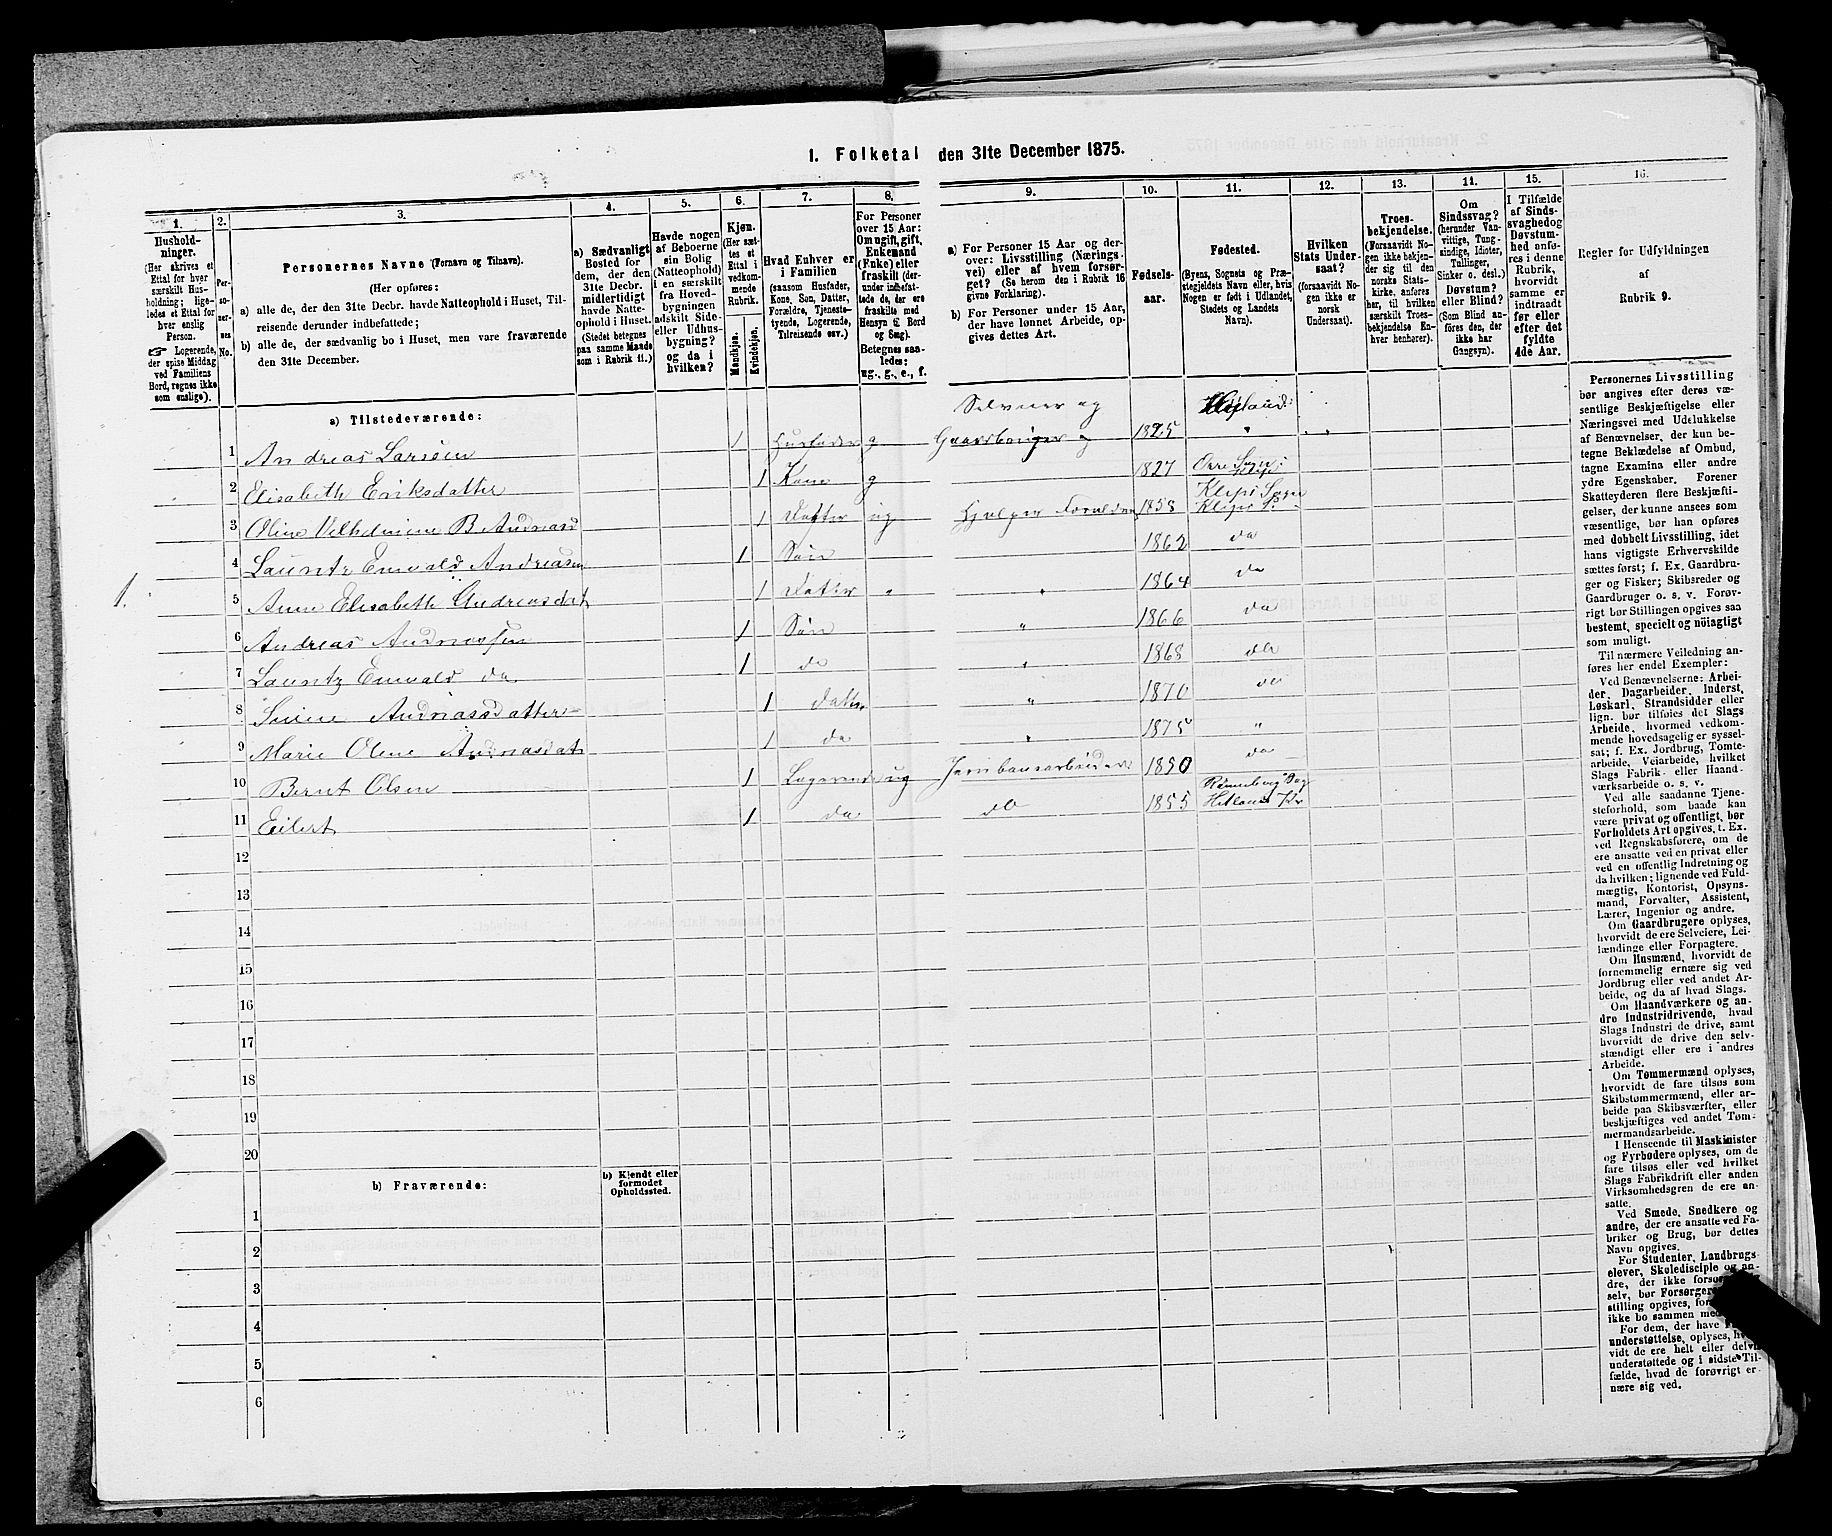 1. Folketal den 31te December 1875.
1.
2.
3.
4.
5.
6.
7.
8.
9.
10.
11.
12.
13.
14.
15.
16.
Hushold-
ninger.
(Her skrives et
Ettal for hver
særskilt Hus-
holdning; lige-
ledes et Ettal for
hver enslig
Person.
☞ Logerende,
der spise Middag
ved Familiens
Bord, regnes ikke
som enslige).
Per-
so-
ner-
nes
No.
Personernes Navne (Fornavn og Tilnavn).
(Her opføres:
a) alle de, der den 31te Decbr. havde Natteophold i Huset, Til-
reisende derunder indbefattede;
b) alle de, der sædvanlig bo i Huset, men vare fraværende
den 31te December.
a) Sædvanligt
Bosted for
dem, der den
31te Decbr.
midlertidigt
havde Natte-
ophold i Huset.
(Stedet betegnes
paa samme Maade
som i Rubrik 11.)
Havde nogen
af Beboerne
sin Bolig
(Natteophold)
i en særskilt
fra Hoved-
bygningen
adskilt Side-
eller Udhus-
bygning?
og da i
hvilken?
Kjøn.
(Her sæt-
tes et
Ettal i
vedkom-
mende
Rubrik.
Mandkjøn.
Kvindekjøn.
Hvad Enhver er
i Familien
(saasom Husfader,
Kone, Søn, Datter,
Forældre, Tjeneste-
tyende, Logerende,
Tilreisende osv.)
For Personer
over 15 Aar:
Om ugift, gift,
Enkemand
(Enke) eller
fraskilt (der-
under indbefat-
tede de, der ere
fraskilte med
Hensyn til Bord
og Seng).
Betegnes saa-
ledes:
ug., g., e., f.
a) For Personer 15 Aar og der-
over: Livsstilling (Nærings-
vei) eller af hvem forsør-
get? (Se herom den i Rubrik 16
givne Forklaring).
b) For Personer under 15 Aar,
der have lønnet Arbeide, op-
gives dettes Art.
Fødsels-
aar.
Fødested.
(Byens, Sognets og Præ-
stegjeldets Navn eller, hvis
Nogen er født i Udlandet,
Stedets og Landets
Navn).
Hvilken
Stats Under-
saat?
(forsaavidt No-
gen ikke er
norsk
Undersaat).
Troes-
bekjendelse.
(Forsaavidt No-
gen ikke bekjen-
der sig til den
norske Stats-
kirke, anføres
her, til hvilken
særskilt Troes-
bekjendelse En-
hver henhører).
Om
Sindssvag?
(herunder Van-
vittige, Tung-
sindige, Idioter,
Tullinger,
Sinker o. desl.)
Døvstum?
eller Blind?
(Som Blind an-
føres den, der
ikke har
Gangsyn).
I Tilfælde
af Sinds-
svaghed og
Døvstum-
hed anfø-
res i denne
Rubrik,
hvorvidt
samme er
indtraadt
før eller
efter det
fyldte
4de Aar.
Regler for Udfyldningen
af
Rubrik 9.
a) Tilstedeværende:
Selveier og
1 Andreas Larsen 1 Husfader g Gaardbruger 1825
2 Elisabeth Eriksdatter 1 Kone g 1827 Orre Sogn
3 Oline Vilhelmine B Andreasd 1 Datter ug Hjelper Forældre 1858 Klepi Sogn
4 Lauritz Emvald Andreasen 1 Søn 1862 do
5 Anne Elisabeth Andreasdat 1 Datter 1864 do
6 Andreas Andreassen 1 Søn " 1866 do
7 Lauritz Emvald do 1 do " 1868 do
8 Andreasdatter 1 Datter " 1870 do
9 Marie Oline Andreasdat 1 do " 1875 "
10 Bernt Olsen 1 Logerende ug Jernbanearbeider 1850 do
11 Eilert 1 do do 1855
12
13
14
15
16
17
18
19
20
1.
b) Fraværende:
b) Kjendt eller
formodet
Opholdssted.
1
2
3
4
5
6
Personernes Livsstilling
bør angives efter deres væ-
sentlige Beskjæftigelse eller
Næringsvei med Udelukkelse
af Benævnelser, der kun be-
tegne Beklædelse af Ombud,
tagne Examina eller andre
ydre Egenskaber. Forener
Skatteyderen flere Beskjæfti-
gelser, der kunne ansees som
væsentlige, bør han opføres
med dobbelt Livsstilling, idet
hans vigtigste Erhvervskilde
sættes først; f. Ex. Gaardbru-
ger og Fisker; Skibsreder og
Gaardbruger o. s. v. Forøv-
rigt bør Stillingen opgives saa
bestemt, specielt og nöiagtigt
som muligt.
Til nærmere Veiledning an-
føres her endel Exempler:
Ved Benævnelserne: Arbei-
der, Dagarbeider, Inderst,
Løskarl, Strandsidder eller
lign. bør tilføies det Slags
Arbeide, hvormed vedkom-
mende hovedsagelig er syssel-
sat; f. Ex. Jordbrug, Tomte-
arbeide, Veiarbeide, hvilket
Slags Fabrik- eller Haand-
værksarbeide o. s. v.
Ved alle saadanne Tjene-
steforhold, som baade kan
være privat og offentligt, bør
Forholdets Art opgives, t. Ex.
ved Regnskabsførere, om de
ere ansatte ved en privat eller
ved en offentlig Indretning og
da hvilken; lignende ved Fuld-
mægtig, Kontorist, Opsyns-
mand, Forvalter, Assistent,
Lærer, Ingeniør og andre.
Om Gaardbrugere oplyses,
hvorvidt de ere Selveiere, Lei-
lændinge eller Forpagtere.
Om Husmænd, hvorvidt de
fornemmelig ernære sig ved
Jordbrug eller ved andet Ar-
beide, og da af hvad Slags.
Om Haandværkere og an-
dre Industridrivende, hvad
Slags Industri de drive, samt
hvorvidt de drive den selv-
stændigt eller ere i andres
Arbeide.
Om Tømmermænd oplyses,
hvorvidt de fare tilsøs som
Skibstømmermænd, eller ar-
beide paa Skibsværfter, eller
beskjæftiges ved andet Tøm-
mermandsarbeide.
I Henseende til Maskinister
og Fyrbødere oplyses, om de
fare tilsøs eller ved hvilket
Slags Fabrikdrift eller anden
Virksomhedsgren de ere an-
satte.
Ved Smede, Snedkere og
andre, der ere ansatte ved Fa-
briker og Brug, bør dettes
Navn opgives.
For Studenter, Landbrugs-
elever, Skoledisciple og an-
dre, der ikke
selv, bør
stilling opgives,
ikke bo sammen
For dem, der have
understøttelse, oplyses,
vidt de ere helt eller
understøttede og i sidste Til-
fælde, hvad de forøvrigt er-
nære sig ved.